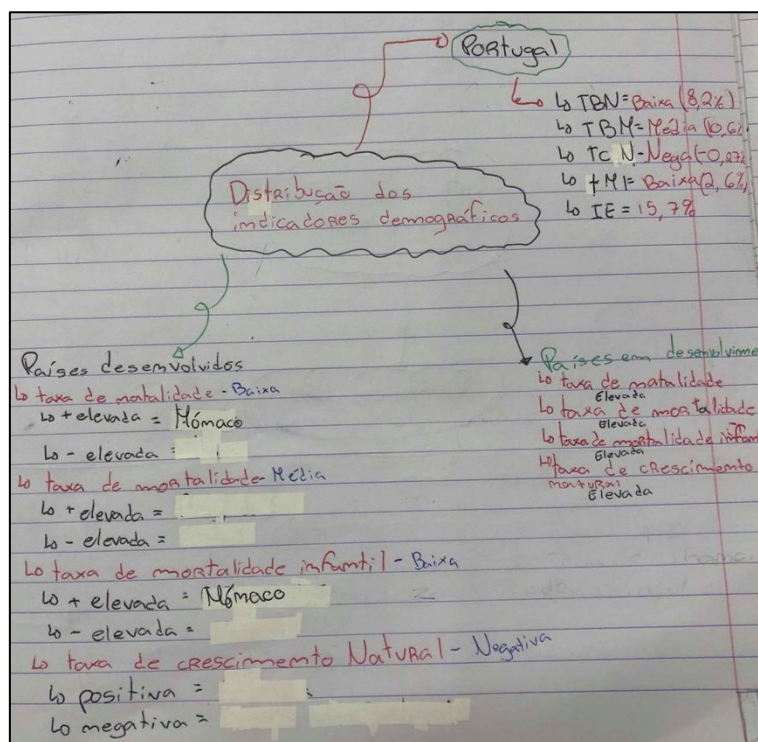 Portugal
↳ TBN = Baixa (8,2%)
↳ TBM = Média (10,6%
↳ TC N - Nega(-0,27%
↳ tMI = Baixa (2,6%)
↳ IE = 15,7%
Distribução dos
indicadores demográficos
Países desenvolvidos
↳ taxa de natalidade - Baixa
↳ + elevada = Mónaco
↳ - elevada =
↳ taxa de mortalidade - Média
↳ + elevada =
↳ - elevada =
↳ taxa de mortalidade infantil - Baixa
↳ + elevada = Mónaco
↳ - elevada =
↳ taxa de crescimento Natural - Negativa
↳ positiva =
↳ negativa =
Países em desenvolvime
↳ taxa de natalidade
Elevada
↳ taxa de mortalidade
Elevada
↳ taxa de mortalidade infant
Elevada
↳ taxa de crescimento
natural
Elevada